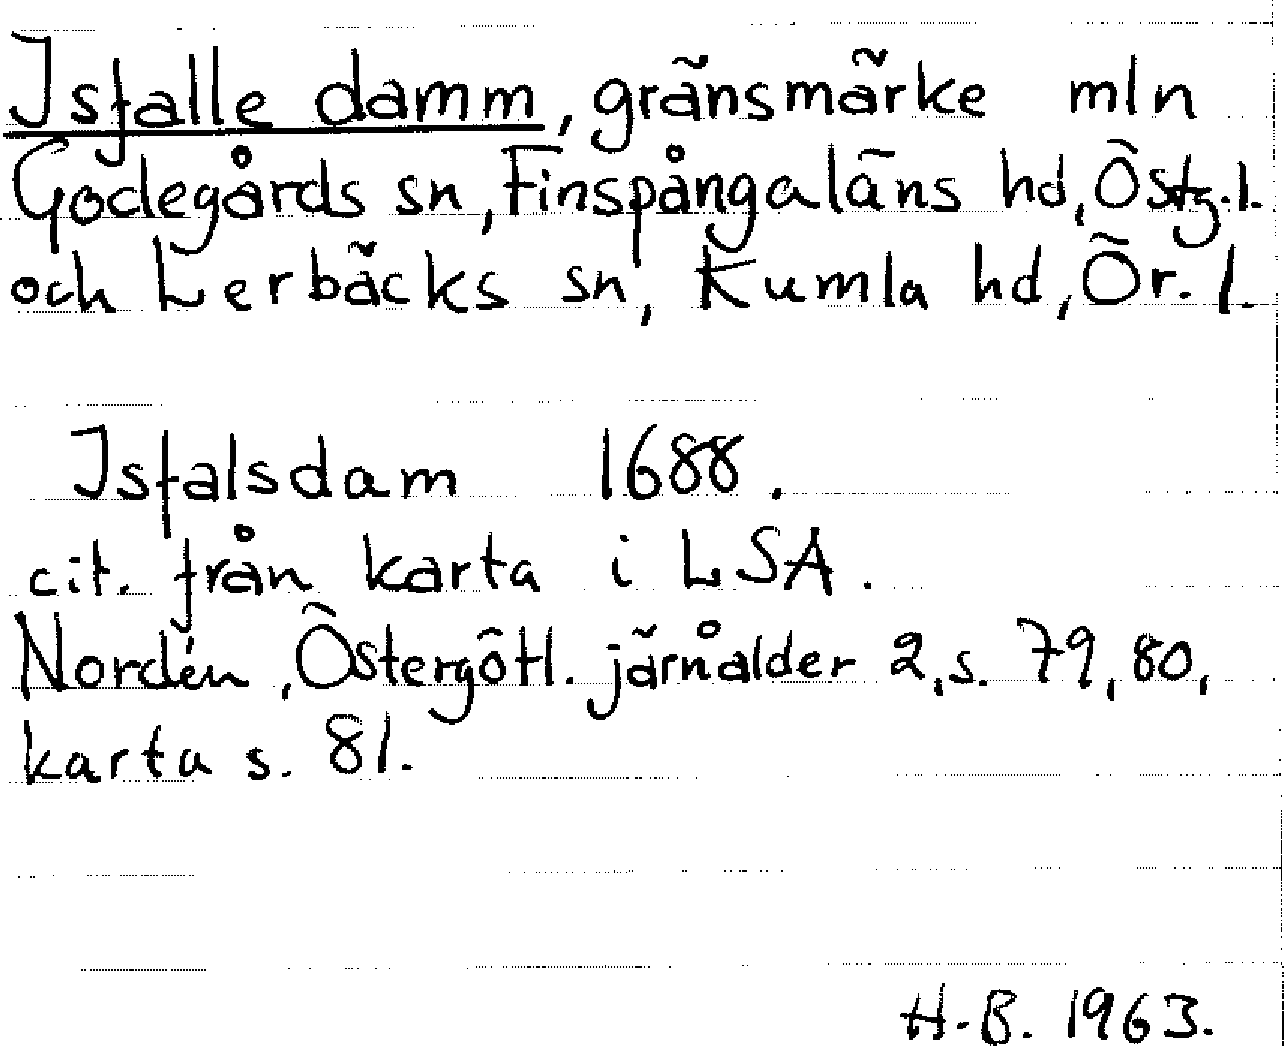 Isfalle damm, gränsmärke mln
Godegårds sn, Finspångaläns hd, Östg.l.
och Lerbäcks sn, Kumla hd, Ör. l.
Isfalsdam 1688.
cit. från karta i LSA.
Nordén, Östergötl. järnålder 2, s. 79, 80,
karta s. 81.
H.B. 1963.